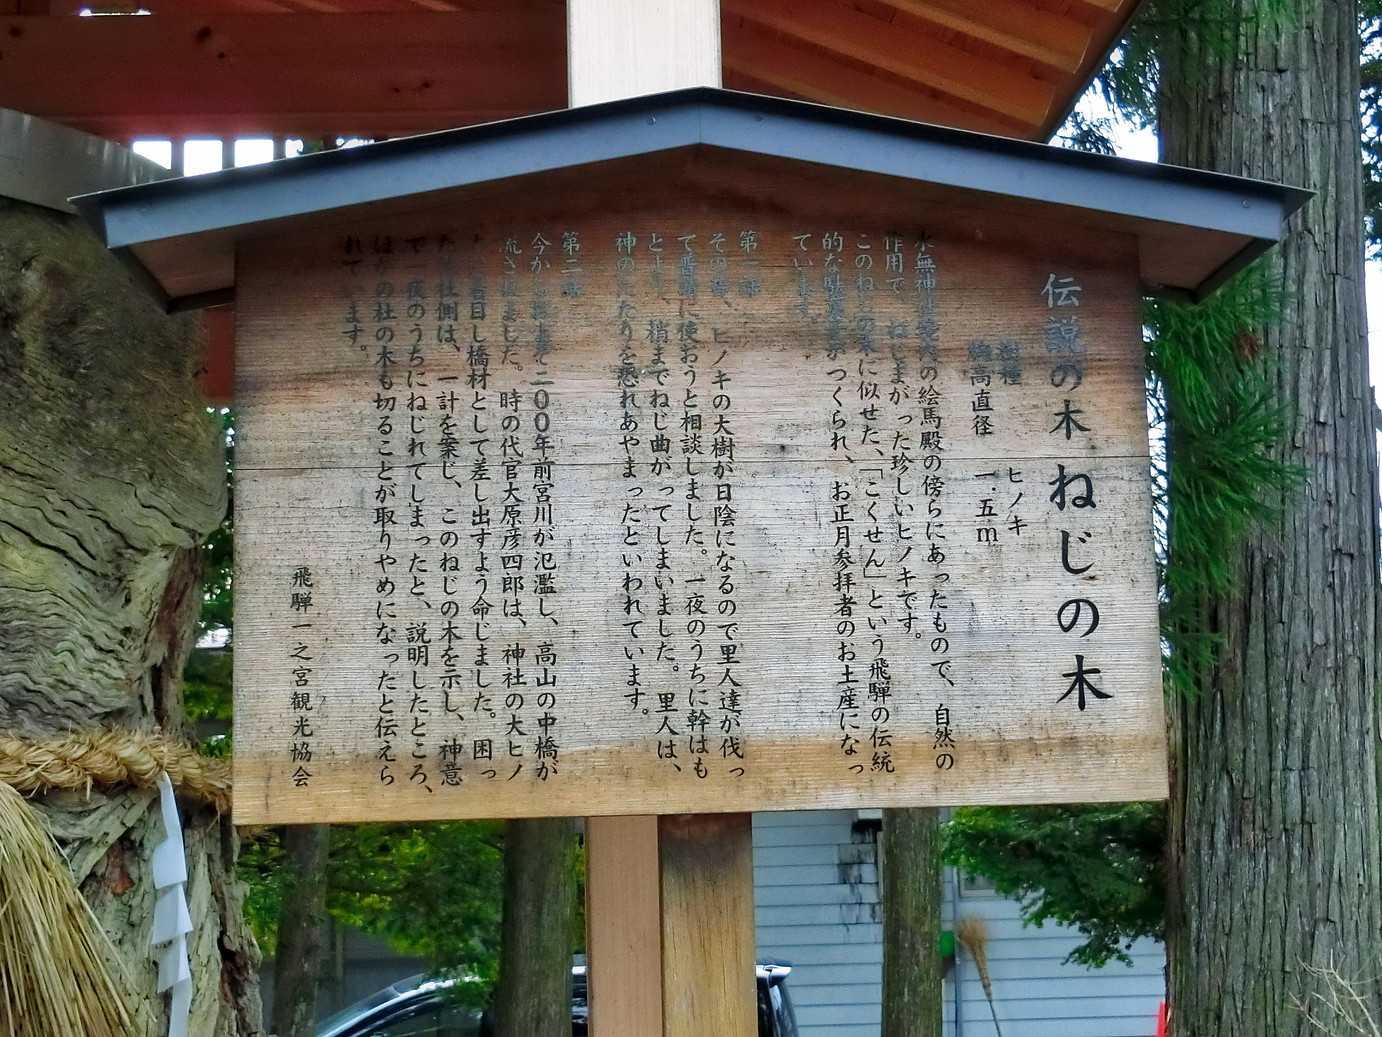 伝説の木 ねじの木
樹種 ヒノキ
胸高直径 一・五m
水無神社の絵馬殿の傍らにあったもので、自然の
作用で、ねじまがった珍しいヒノキです。
このねじの木に似せた、「こくせん」という飛騨の伝統
的な がつくられ、お正月参拝者のお土産になっ
ています。
第一話
その昔、ヒノキの大樹が日陰になるので里人達が伐っ
て普請に使おうと相談しました。一夜のうちに幹はも
とより、梢までねじ曲がってしまいました。里人は、
神のたたりを恐れあやまったといわれています。
第二話
今から およそ二〇〇年前宮川が氾濫し、高山の中橋が
流されました。時の代官大原彦四郎は、神社の大ヒノ
キに着目し橋材として差し出すよう命じました。困っ
た神社側は、一計を案じ、このねじの木を示し、神意
で一夜のうちにねじれてしまったと、説明したところ、
ほかの社の木も切ることが取りやめになったと伝えら
れています。
飛騨一之宮観光協会